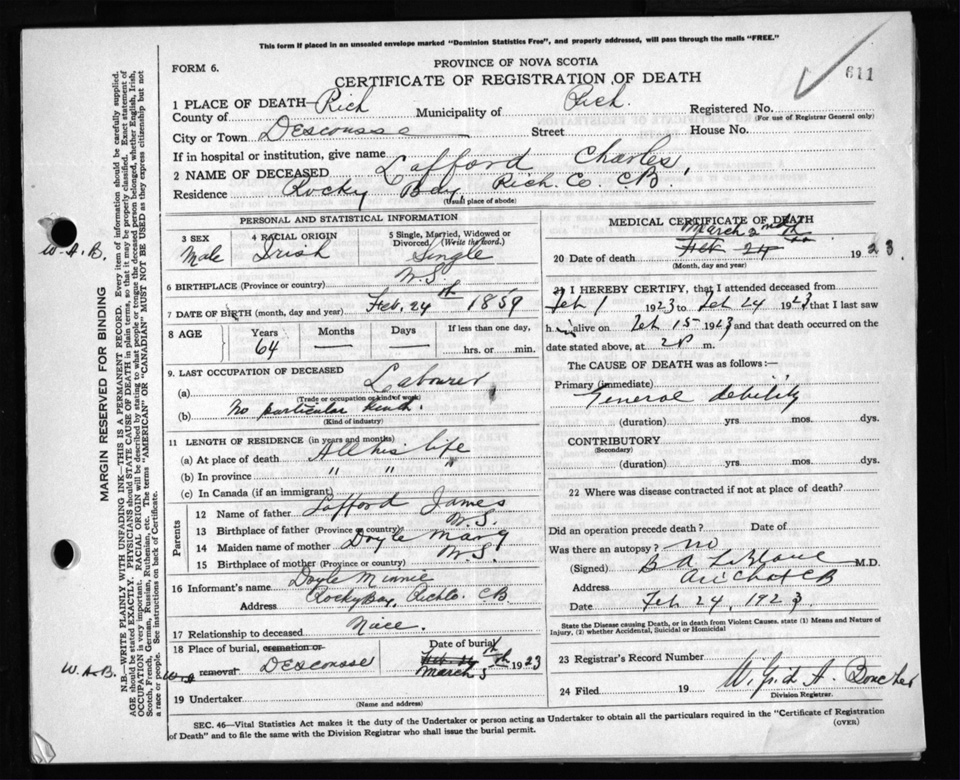 This form if placed in an unsealed envelope marked "Dominion Statistics Free", and properly addressed, will pass through the mails "FREE."
611
FORM 6.
PROVINCE OF NOVA SCOTIA
CERTIFICATE OF REGISTRATION OF DEATH
1 PLACE OF DEATH—
County of Rich Municipality of Rich. Registered No.
(For use of Registrar General only)
City or Town Descousse Street House No.
If in hospital or institution, give name
2 NAME OF DECEASED Lafford Charles
Residence Rocky Bay Rich. Co. C.B.
(Usual place of abode)
PERSONAL AND STATISTICAL INFORMATION
3 SEX 4 RACIAL ORIGIN 5 Single, Married, Widowed or Divorced (Write the word.)
Male Irish Single
6 BIRTHPLACE (Province or country) N.S.
7 DATE OF BIRTH (month, day and year) Feb. 24th 1859
8 AGE Years Months Days If less than one day,
64 — — hrs. or min.
9. LAST OCCUPATION OF DECEASED
(a) Labourer
(Trade or occupation or kind of work)
(b) No particular kind.
(Kind of industry)
11 LENGTH OF RESIDENCE (in years and months)
(a) At place of death All his life
(b) In province " " "
(c) In Canada (if an immigrant)
Parents
12 Name of father Lafford James
13 Birthplace of father (Province or country) N.S.
14 Maiden name of mother Doyle Mary
15 Birthplace of mother (Province or country) N.S.
16 Informant's name Doyle Minnie
Address Rocky Bay, Rich Co. C.B
17 Relationship to deceased Niece.
18 Place of burial, cremation or removal Descousse Date of burial March 5th 1923
W.A.B.
19 Undertaker
(Name and address)
MEDICAL CERTIFICATE OF DEATH
March 2nd
20 Date of death Feb 24 1923.
(Month, day and year)
21 I HEREBY CERTIFY, that I attended deceased from
Feb 1 1923 to Feb 24 1923 that I last saw
him alive on Feb 15 1923 and that death occurred on the
date stated above, at 2 P m.
The CAUSE OF DEATH was as follows:—
Primary (immediate) General debility
(duration) yrs. mos. dys.
CONTRIBUTORY
(Secondary)
(duration) yrs. mos. dys.
22 Where was disease contracted if not at place of death?
Did an operation precede death? Date of
Was there an autopsy? no
(Signed) B A LeBlanc M.D.
Address Arichat CB
Date Feb 24, 1923
State the Disease causing Death, or in death from Violent Causes, state (1) Means and Nature of Injury, (2) whether Accidental, Suicidal or Homicidal
23 Registrar's Record Number
24 Filed 19 A. Boucher
Division Registrar.
SEC. 46—Vital Statistics Act makes it the duty of the Undertaker or person acting as Undertaker to obtain all the particulars required in the "Certificate of Registration
of Death" and to file the same with the Division Registrar who shall issue the burial permit. (OVER)
W.A.B.
W.A.B.
MARGIN RESERVED FOR BINDING
N.B.—WRITE PLAINLY WITH UNFADING INK—THIS IS A PERMANENT RECORD. Every item of information should be carefully supplied.
AGE should be stated EXACTLY. PHYSICIANS should STATE CAUSE OF DEATH in plain terms, so that it may be properly classified. Exact statement of
OCCUPATION is very important. RACIAL ORIGIN will be described by stating to what people or tongue the deceased person belonged, whether English, Irish,
Scotch, French, German, Russian, Ruthenian, etc. The terms "AMERICAN" OR "CANADIAN" MUST NOT BE USED as they express citizenship but not
a race or people. See instructions on back of Certificate.